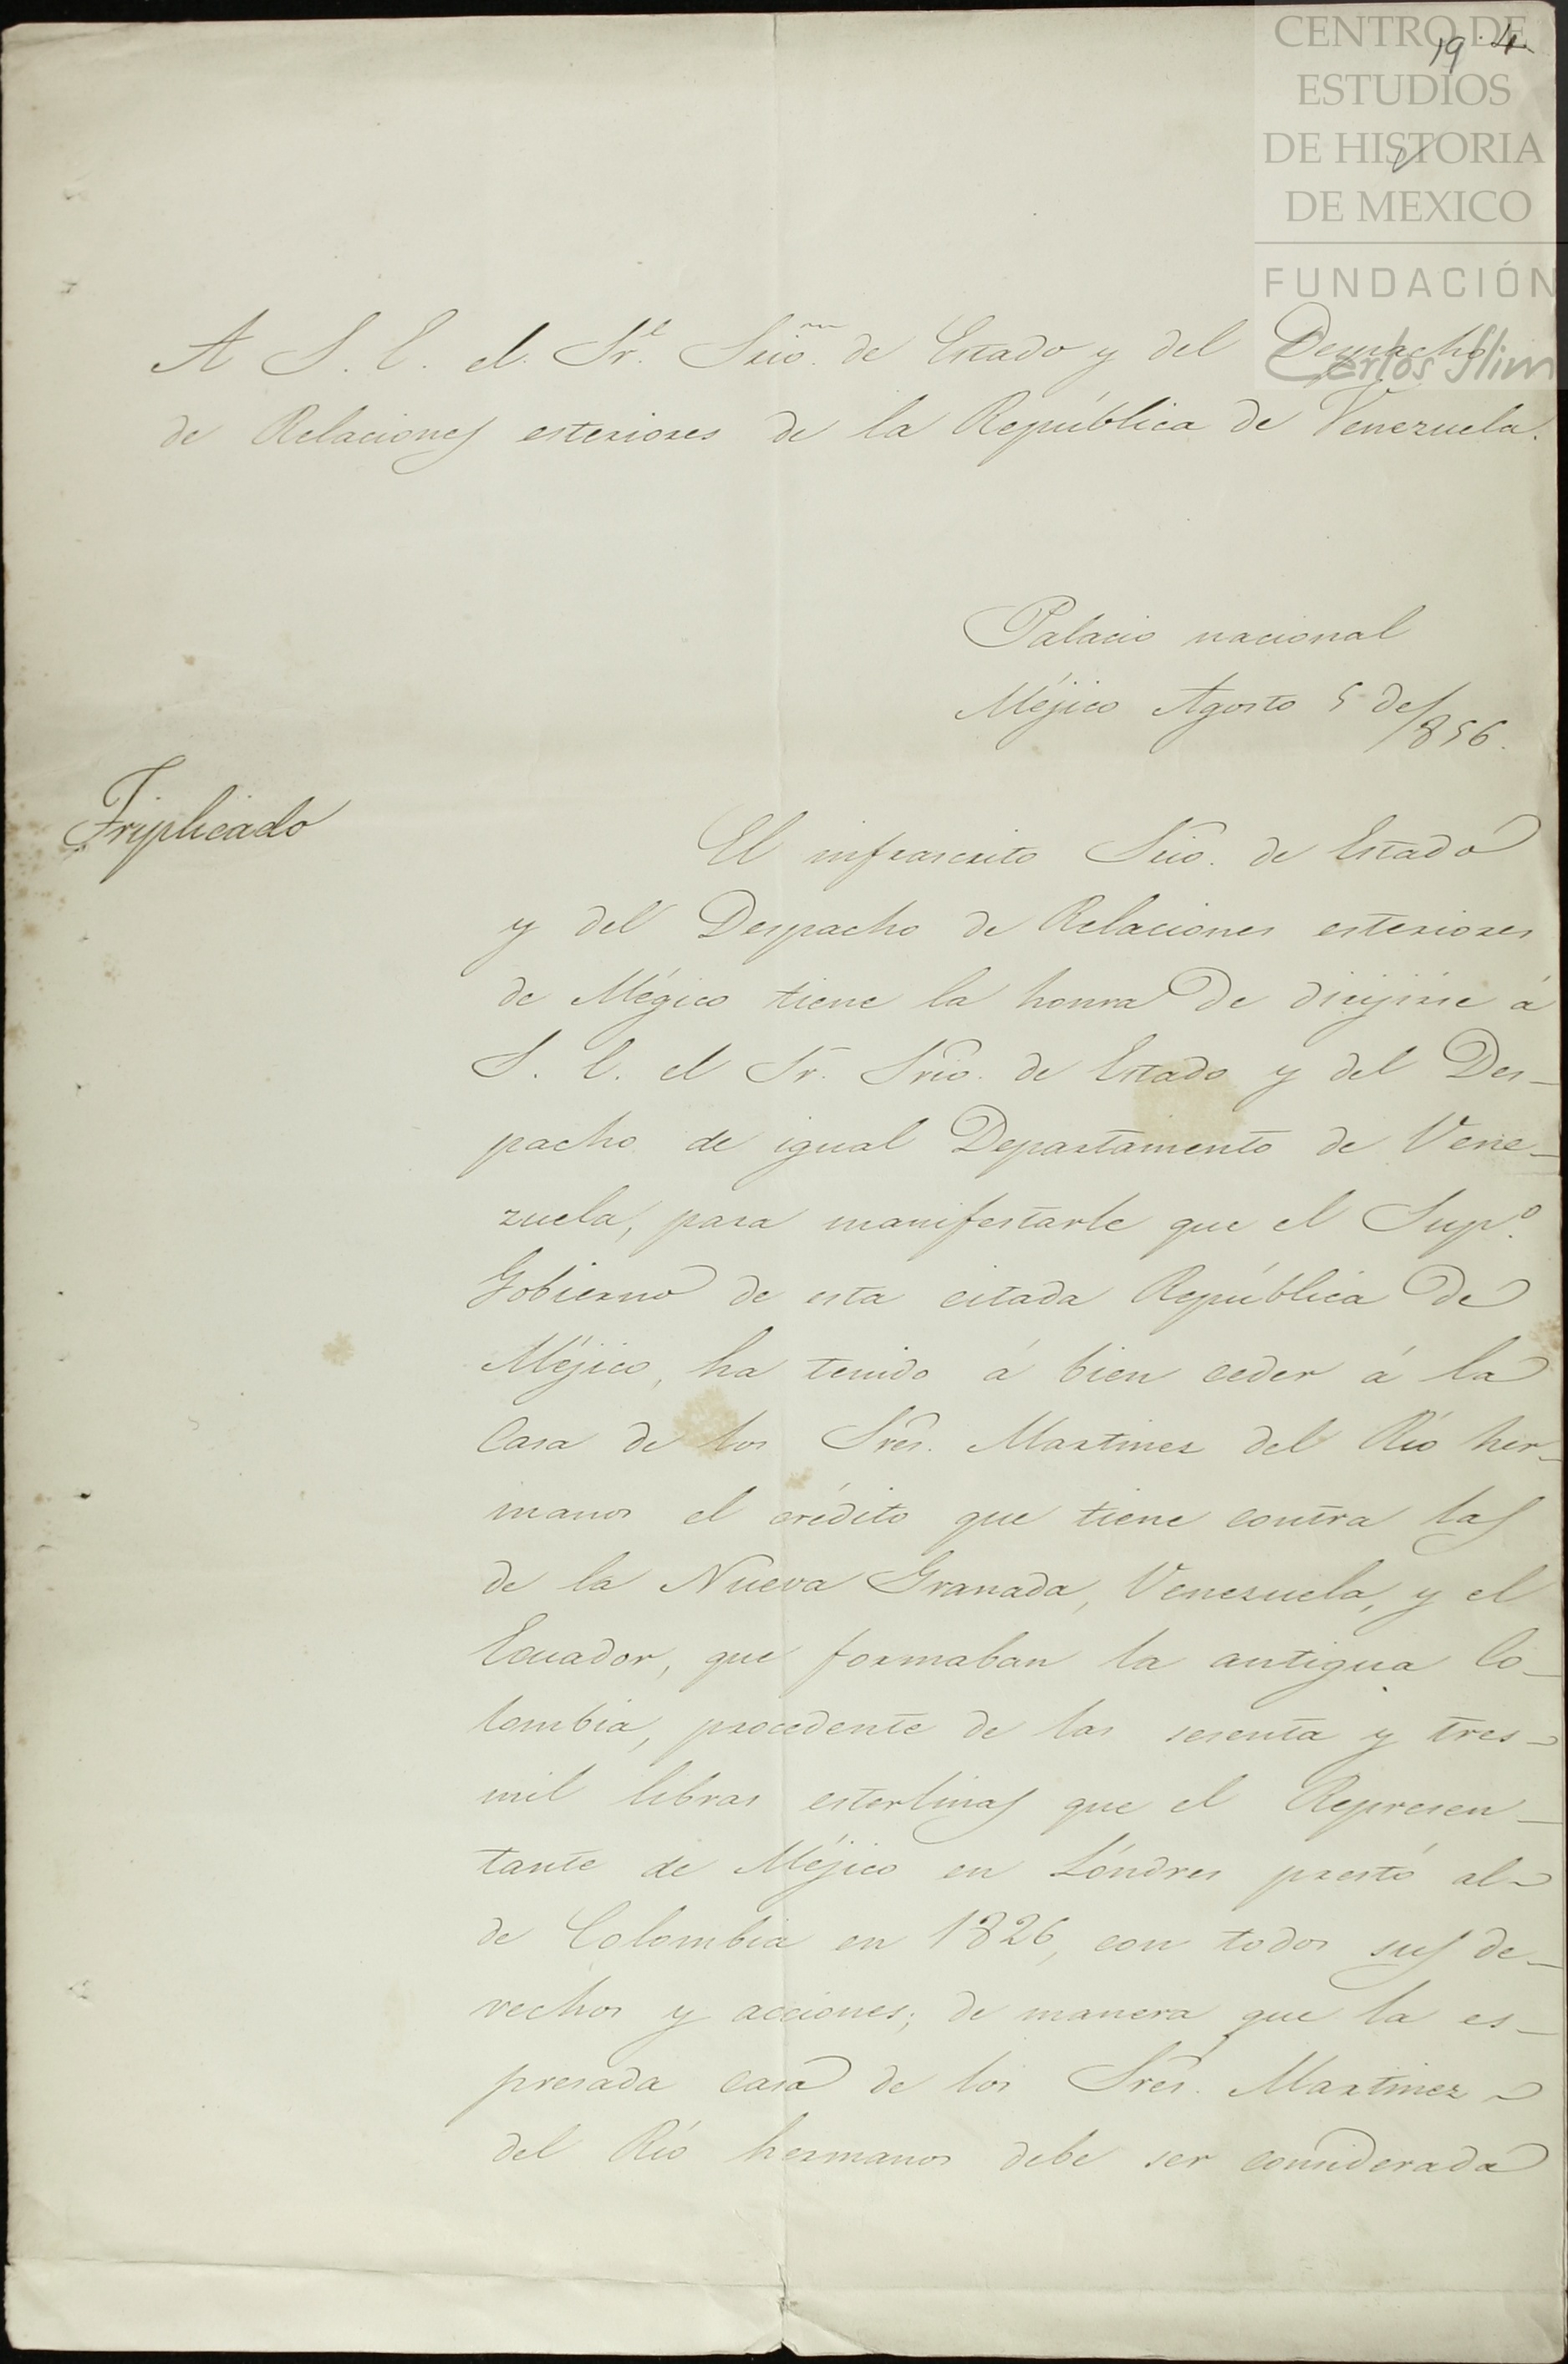 CENTRO DE
ESTUDIOS
DE HISTORIA
DE MEXICO
FUNDACIÓN
Carlos Slim
19 4
A S. E. el Sr. Srio. de Estado y del Despacho
de Relaciones esteriores de la República de Venezuela.
Palacio nacional
Méjico Agosto 5 de
1856.
Triplicado
El infrascrito Srio. de Estado
y del Despacho de Relaciones esteriores
de Mégico tiene la honra de dirijirse á
S. E. el Sr. Srio. de Estado y del Des-
pacho de igual Departamento de Vene-
zuela, para manifestarle que el Supº.
Gobierno de esta citada República de
Méjico, ha tenido á bien ceder á la
Casa de los Sres. Martinez del Rio her-
manos el crédito que tiene contra las
de la Nueva Granada, Venezuela, y el
Ecuador, que formaban la antigua Co-
lombia, procedente de las sesenta y tres
mil libras esterlinas que el Represen-
tante de Méjico en Lóndres prestó al
de Colombia en 1826, con todos sus de-
rechos y acciones; de manera que la es-
presada casa de los Sres. Martinez
del Rio hermanos debe ser considerada